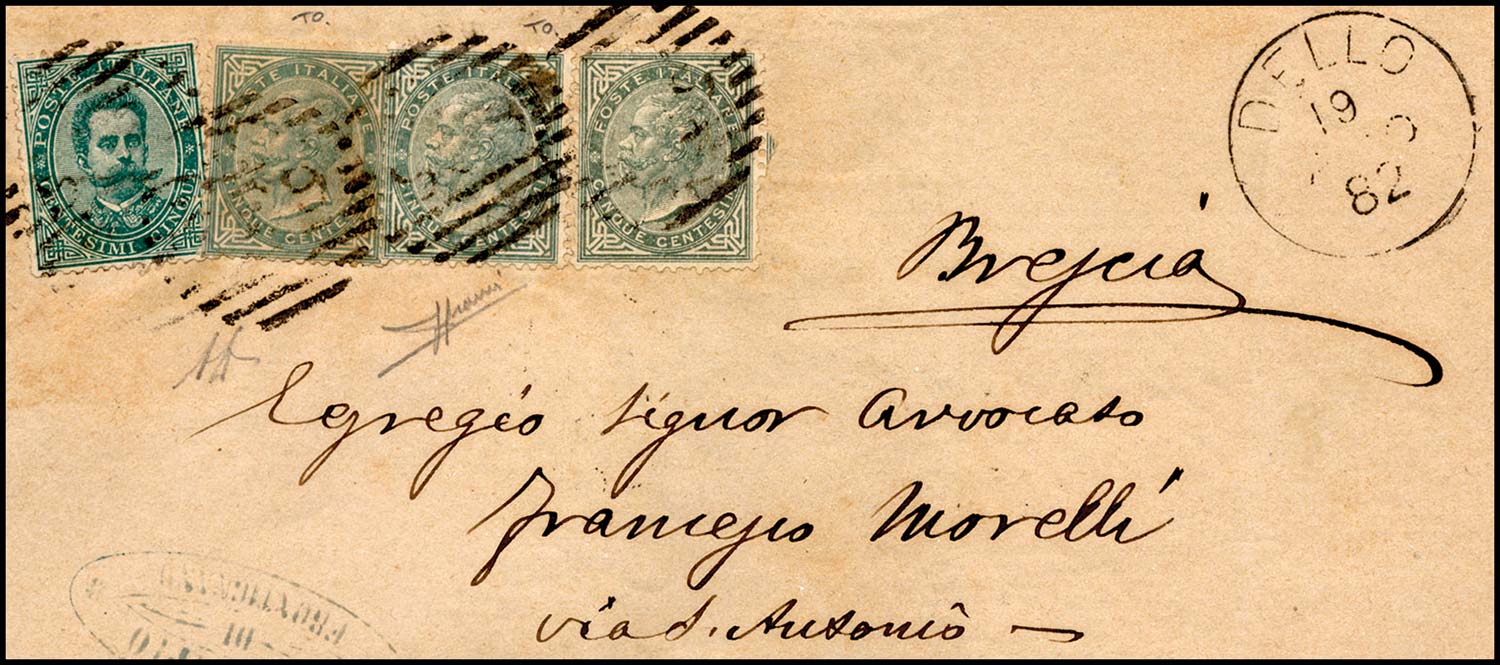 TO. TO.
POSTE ITALIANE
CENTESIMI CINQUE
POSTE ITALIANE
CINQUE CENTESIMI
POSTE ITALIANE
CINQUE CENTESIMI
POSTE ITALIANE
CINQUE CENTESIMI
DELLO
19
82
Brescia
Egregio Signor Avvocato
Francesco Morelli
via S. Antonio
DI